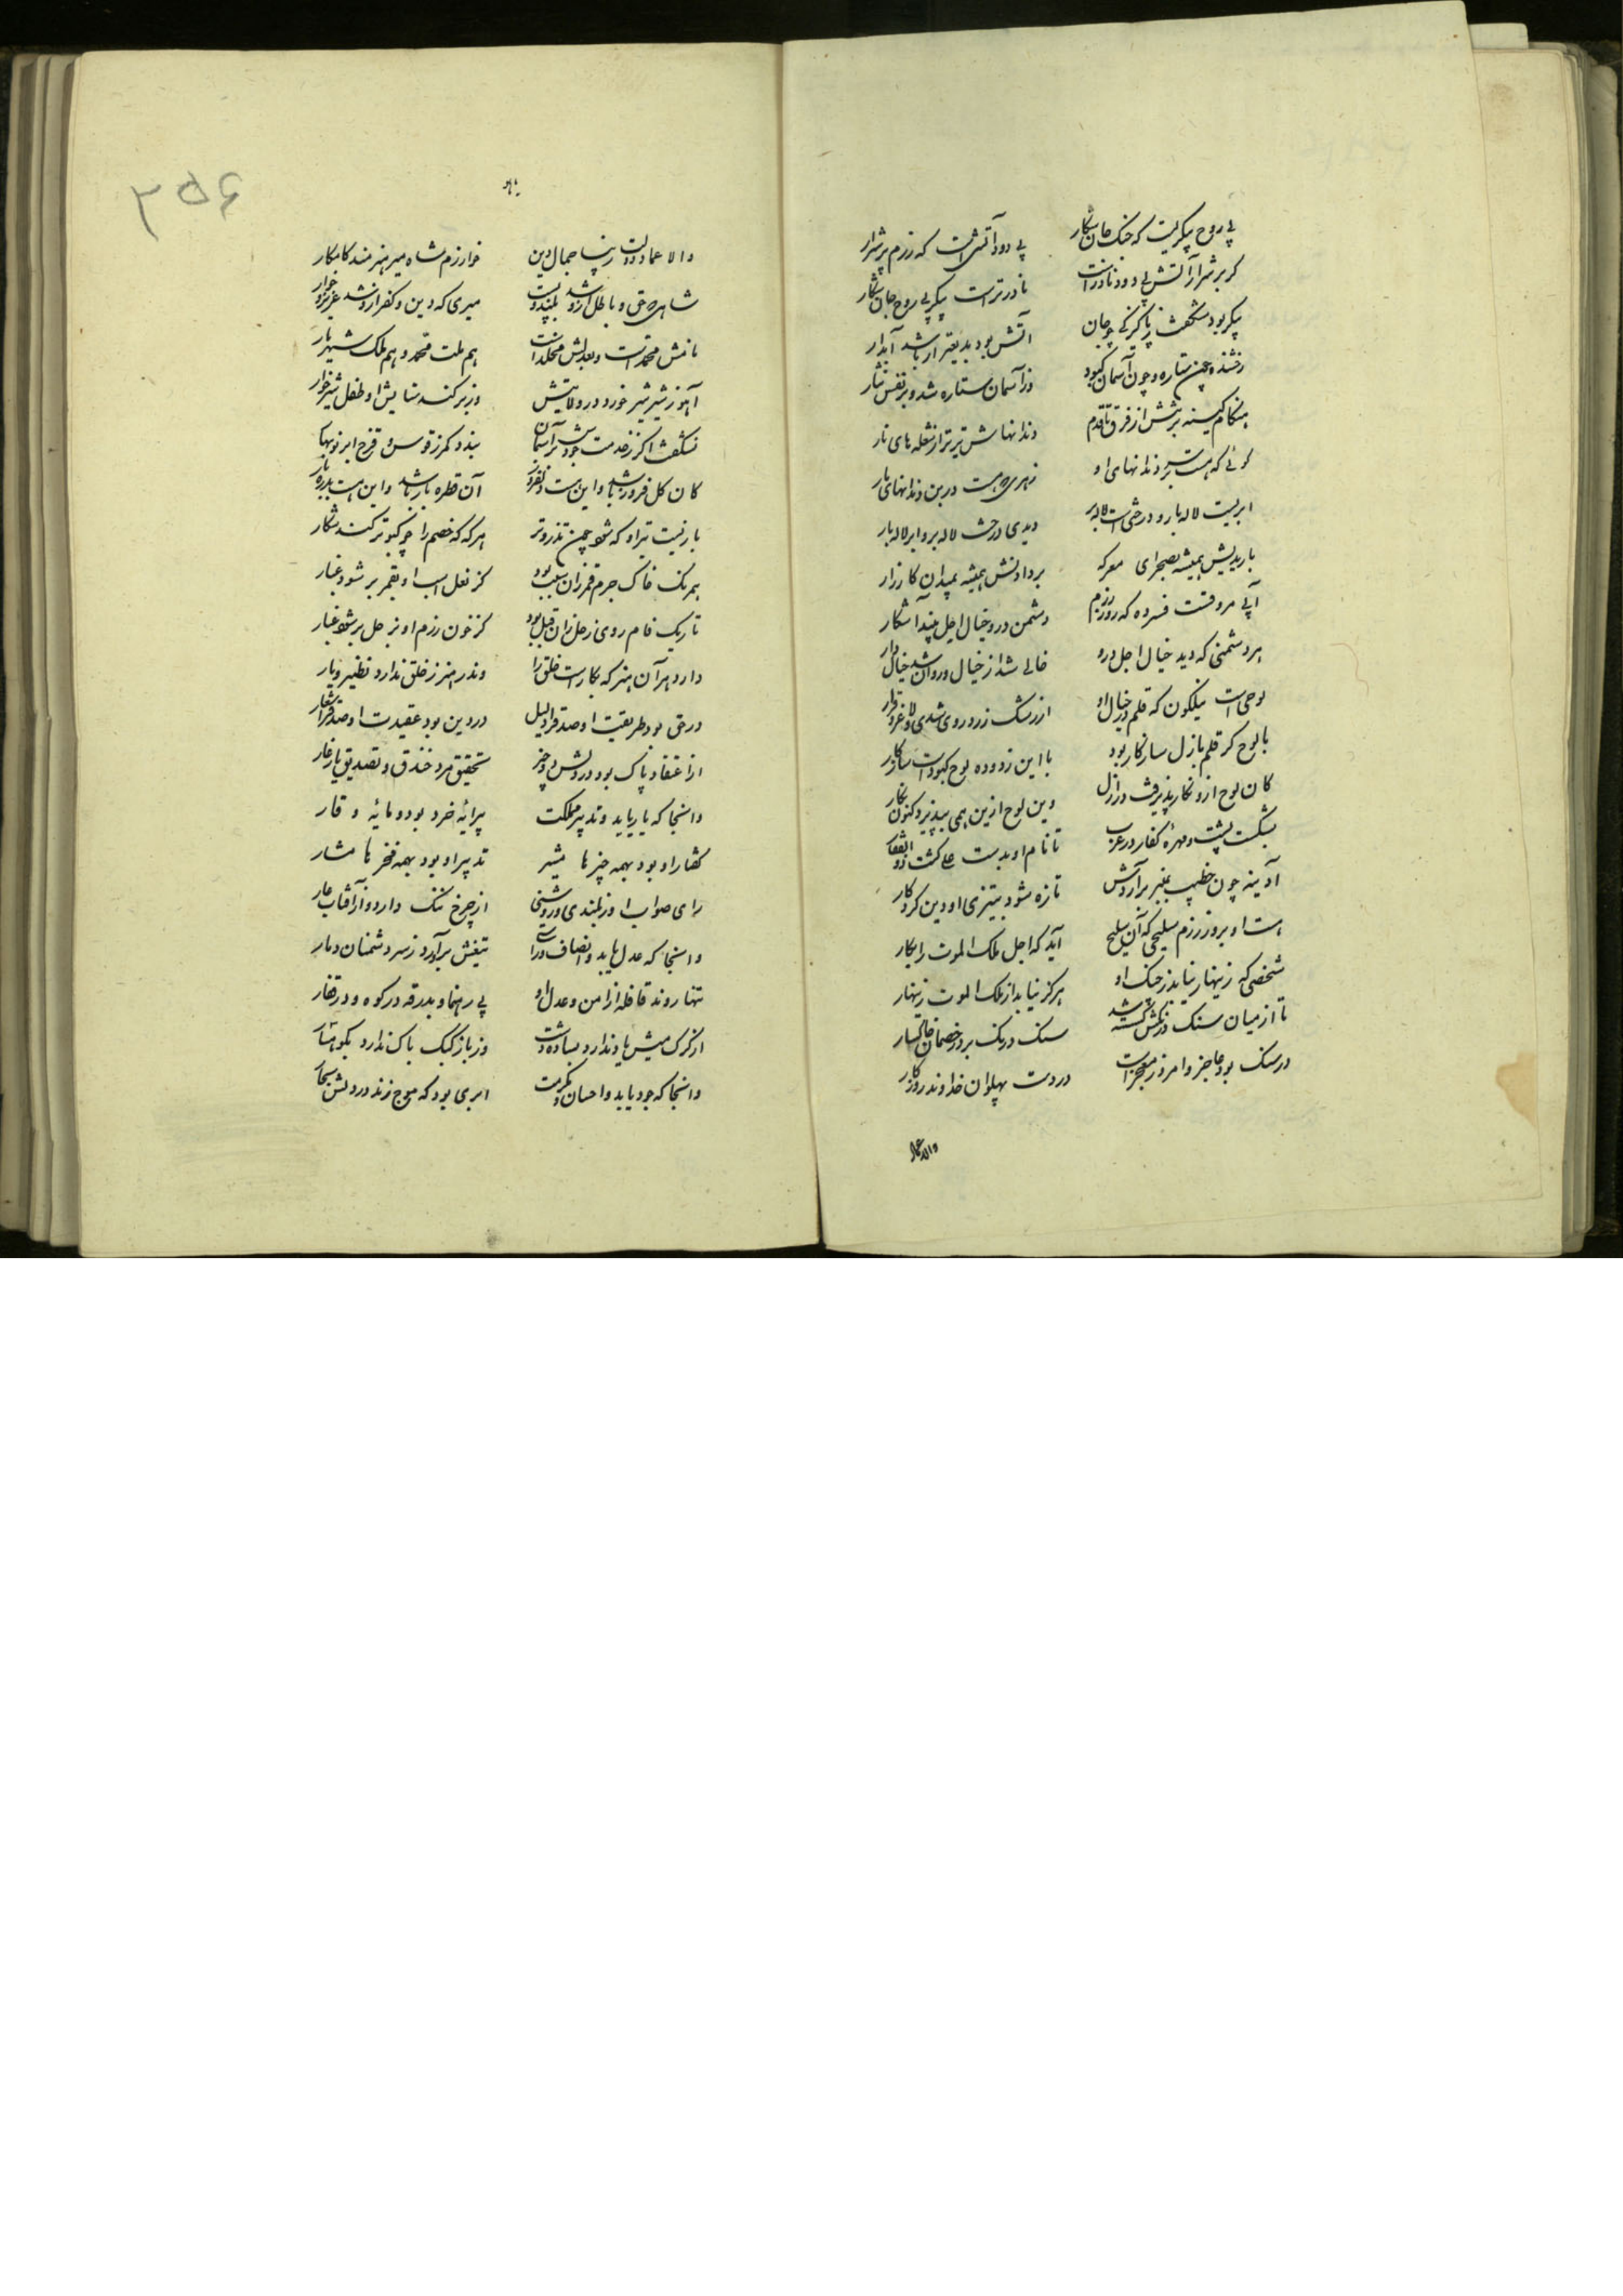 بی روح پیکریست که جنک جان شکار بی دود آتشی است که رزم پر شرار
کر پر شرار آتش بی دود نادر است نادرتر است پیکر بی روح جان شکار
پیکر بود شکفت پاکیزکی چو جان آتش بود بدیع تر ار باشد آبدار
رخشنده چون ستاره و چون آسمان کبود وز آسمان ستاره شد و بر نفس نثار
هنکام کینه بر تنش از فرق تا قدم دندانهاش تیزتر از شعله های نار
کوئی که هست بر سر دندانهای او زهری که هست در بن دندانهای مار
ابریست لاله بار و درختی است لاله بر دیدی درخت لاله بر و ابر لاله بار
باریدنش همیشه بصحرای معرکه بر دادنش همیشه بمیدان کارزار
دشمن درو خیال اجل بیند آشکار
هر دشمنی که دید خیال اجل درو خالی شد از خیال و روان شد خیال وار
لوحی است نیلکون که قلم در خیال او از رشک زرد روی شدی و لاغر و نزار
با لوح کر قلم بازل سازکار بود با این زدوده لوح کبود است سازکار
کان لوح ازو نکار پذیرفت در ازل وین لوح ازین همی بپذیرد کنون نکار
بشکست پشت و مهرهٔ کفار در عرب تا نام او بدست علی کشت ذوالفقار
آدینه چون خطیب بمنبر برآردش تازه شود بتیزی او دین کردکار
هست او بروز رزم سلیحی که آن سلیح آید که اجل ملک الموت را بکار
شخصی که زینهار نیابد ز جنک او هرکز نیابد از ملک الموت زینهار
تا از میان سنک درنکش کسسته شد سنک و درنک برد ز خصمان خاکسار
در سنک بود عاجز و امروز معجز است در دست پهلوان خداوند روزکار
والا عماد
والا عماد دولت و رینا جمال دین خوارزم شاه میر هنرمند کامکار
شاهی که حق و باطل ازو شد بلند و پست میری که دین و کفر ازو شد عزیز و خوار
نامش محمد است و بعدلش مخلد است هم ملت محمد و هم ملک شهریار
آهو ز شیر شیر خورد در ولایتش وز بر کند ستایش او طفل شیرخوار
نشکفت اکر ز خدمت جودش بر آسمان بندد کمر ز قوس قزح ابر نوبهار
کان کل فروز باشد و این هست دلفروز آن قطره بار باشد و این هست بدره بار
بازیست تیر او که شود چون تذرو تر هر که که خصم را چو کبوتر کند شکار
همرنک خاک جرم قمر زان سبب بود کز نعل اسب او بقمر بر شود غبار
تاریک فام روی زحل زان قبل بود کز خون رزم او بزحل بر شود غبار
دارد هر آن هنر که بکار است خلق را وندر هنر ز خلق ندارد نظیر و یار
در حق بود طریقت او صدق را دلیل در دین بود عقیدت او صدق را شعار
از اعتقاد پاک بود در دلش دو چیز تحقیق مرد خندق و تصدیق یار غار
وانجا که یار باید و تدبیر مملکت پیرایهٔ خرد بود و مایهٔ وقار
کفتار او بود بهمه چیزها مشیر تدبیر او بود بهمه فخرها مشار
رای صواب او ز بلندی و روشنی از چرخ ننک دارد و از آفتاب عار
وانجا که عدل باید و انصاف و راستی تیغش برآورد ز سر دشمنان دمار
تنها روند قافله از امن و عدل او بی رهنما و بدرقه در کوه و در قفار
از کرک میش یاد ندارد بساده دشت وز باز کبک باک ندارد بکوهسار
وانجا که جود باید و احسان و مکرمت ابری بود که موج زند در دلش بحار
۳۵۶